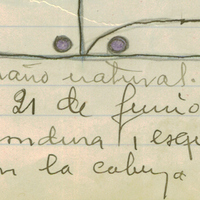 maño natural.
21 de Junio
ondura, esqu
n la cabeza